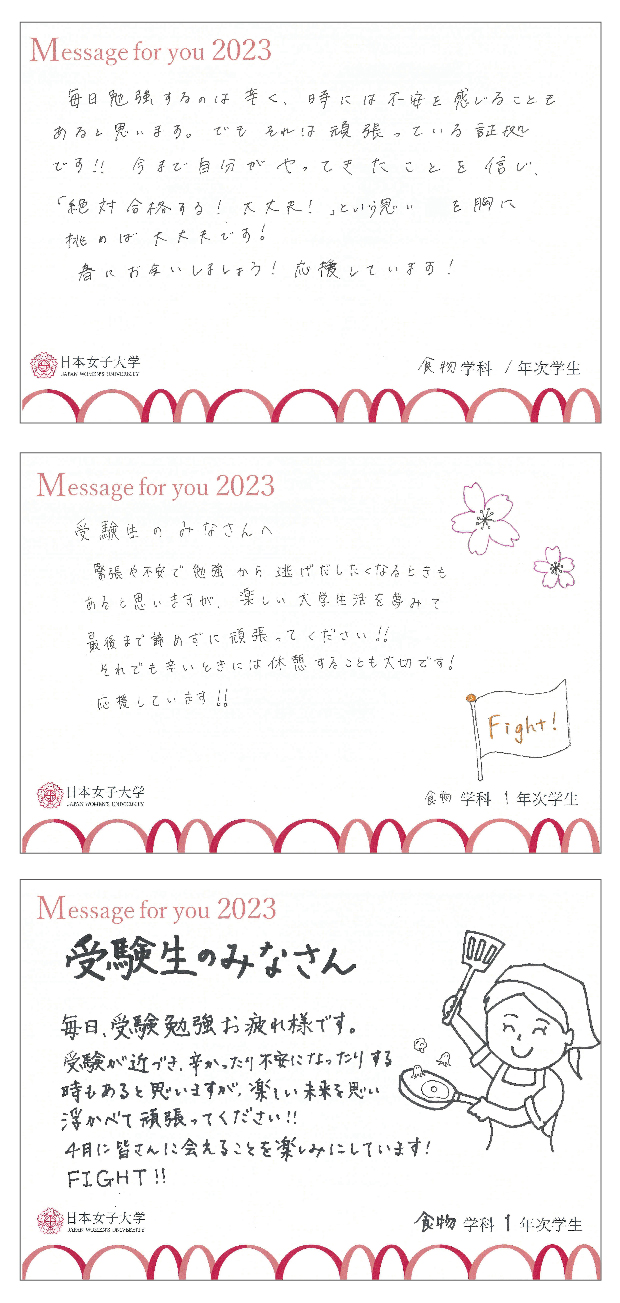 Message for you 2023
毎日勉強するのは辛く、時には不安を感じることも
あると思います。でもそれは頑張っている証拠
です!! 今まで自分がやってきたことを信じ、
「絶対合格する!大丈夫!」という思いを胸に
挑めば大丈夫です!
春にお会いしましょう!応援しています!
日本女子大学
JAPAN WOMEN'S UNIVERSITY
食物学科 1年次学生
Message for you 2023
受験生のみなさんへ
緊張や不安で勉強から逃げだしたくなるときも
あると思いますが、楽しい大学生活を夢みて
最後まで諦めずに頑張ってください!!
それでも辛いときには休憩することも大切です!
応援しています!!
Fight!
日本女子大学
JAPAN WOMEN'S UNIVERSITY
食物 学科 1 年次学生
Message for you 2023
受験生のみなさん
毎日、受験勉強お疲れ様です。
受験が近づき、辛かったり不安になったりする
時もあると思いますが、楽しい未来を思い
浮かべて頑張ってください!!
4月に皆さんに会えることを楽しみにしています!
FIGHT!!
日本女子大学
JAPAN WOMEN'S UNIVERSITY
食物 学科 1 年次学生